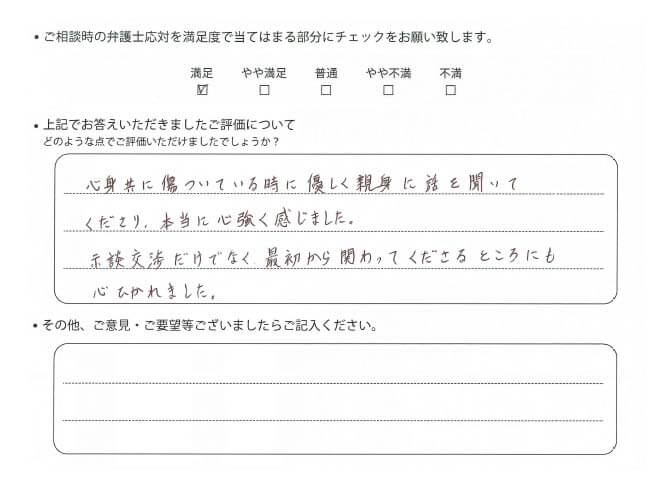 • ご相談時の弁護士応対を満足度で当てはまる部分にチェックをお願い致します。
満足 やや満足 普通 やや不満 不満
☑ ☐ ☐ ☐ ☐
• 上記でお答えいただきましたご評価について
どのような点でご評価いただけましたでしょうか？
心身共に傷ついている時に優しく親身に話を聞いて
くださり、本当に心強く感じました。
示談交渉だけでなく、最初から関わってくださるところにも
心ひかれました。
• その他、ご意見・ご要望等ございましたらご記入ください。